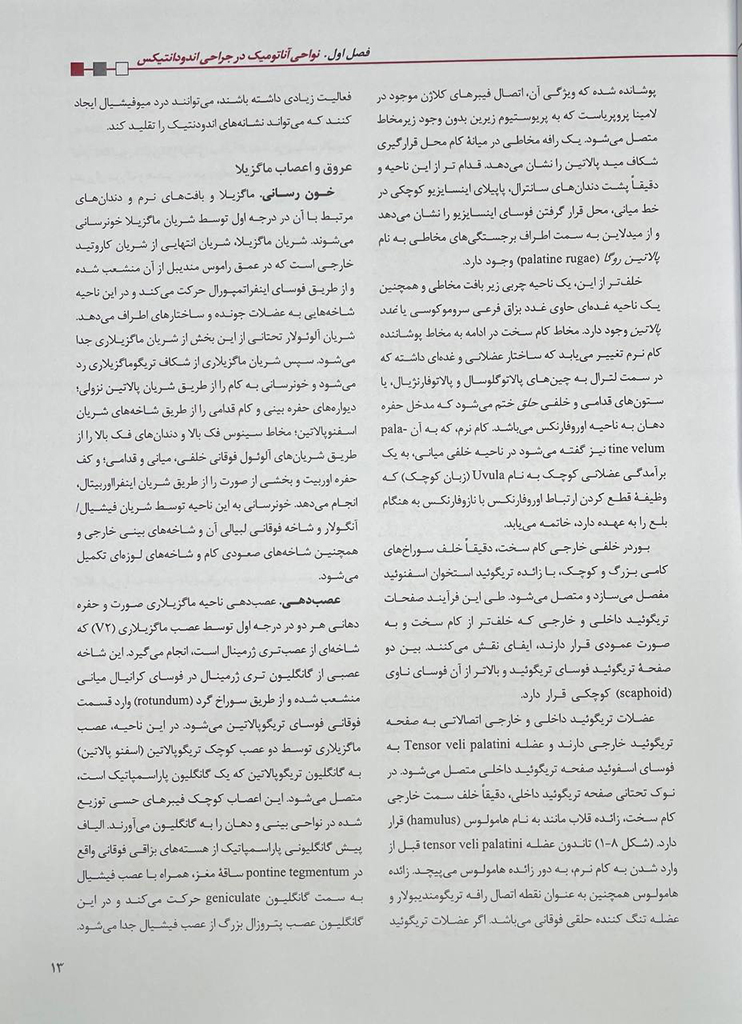 فصل اول. نواحی آناتومیک در جراحی اندودانتیکس
پوشانده شده که ویژگی آن، اتصال فیبرهای کلاژن موجود در
لامینا پروپریاست که به پریوستیوم زیرین بدون وجود زیرمخاط
متصل می‌شود. یک رافه مخاطی در میانهٔ کام محل قرارگیری
شکاف مید پالاتین را نشان می‌دهد. قدام تر از این ناحیه و
دقیقاً پشت دندان‌های سانترال، پاپیلای اینسایزیو کوچکی در
خط میانی، محل قرار گرفتن فوسای اینسایزیو را نشان می‌دهد
و از میدلاین به سمت اطراف برجستگی‌های مخاطی به نام
پالاتین روگا (palatine rugae) وجود دارد.
خلف‌تر از این، یک ناحیه چربی زیر بافت مخاطی و همچنین
یک ناحیه غده‌ای حاوی غدد بزاق فرعی سروموکوسی یا غدد
پالاتین وجود دارد. مخاط کام سخت در ادامه به مخاط پوشاننده
کام نرم تغییر می‌یابد که ساختار عضلانی و غده‌ای داشته که
در سمت لترال به چین‌های پالاتوگلوسال و پالاتوفارنژیال، یا
ستون‌های قدامی و خلفی حلق ختم می‌شود که مدخل حفره
دهان به ناحیه اوروفارنکس می‌باشد. کام نرم، که به آن pala-
tine velum نیز گفته می‌شود در ناحیه خلفی میانی، به یک
برآمدگی عضلانی کوچک به نام Uvula (زبان کوچک) که
وظیفهٔ قطع کردن ارتباط اوروفارنکس با نازوفارنکس به هنگام
بلع را به عهده دارد، خاتمه می‌یابد.
بوردر خلفی خارجی کام سخت، دقیقاً خلف سوراخ‌های
کامی بزرگ و کوچک، با زائده تریگوئید استخوان اسفنوئید
مفصل می‌سازد و متصل می‌شود. طی این فرآیند صفحات
تریگوئید داخلی و خارجی که خلف‌تر از کام سخت و به
صورت عمودی قرار دارند، ایفای نقش می‌کنند. بین دو
صفحهٔ تریگوئید فوسای تریگوئید و بالاتر از آن فوسای ناوی
(scaphoid) کوچکی قرار دارد.
عضلات تریگوئید داخلی و خارجی اتصالاتی به صفحه
تریگوئید خارجی دارند و عضله Tensor veli palatini به
فوسای اسفوئید صفحه تریگوئید داخلی متصل می‌شود. در
نوک تحتانی صفحه تریگوئید داخلی، دقیقاً خلف سمت خارجی
کام سخت، زائده قلاب مانند به نام هامولوس (hamulus) قرار
دارد. (شکل ۸-۱) تاندون عضله tensor veli palatini قبل از
وارد شدن به کام نرم، به دور زائده هامولوس می‌پیچد. زائده
هامولوس همچنین به عنوان نقطه اتصال رافه تریگومندیبولار و
عضله تنگ کننده حلقی فوقانی می‌باشد. اگر عضلات تریگوئید
فعالیت زیادی داشته باشند، می‌توانند درد میوفیشیال ایجاد
کنند که می‌تواند نشانه‌های اندودنتیک را تقلید کند.
عروق و اعصاب ماگزیلا
خـون رسـانی. ماگزیلا و بافت‌های نرم و دندان‌های
مرتبط با آن در درجه اول توسط شریان ماگزیلا خونرسانی
می‌شوند. شریان ماگزیلا، شریان انتهایی از شریان کاروتید
خارجی است که در عمق راموس مندیبل از آن منشعب شده
و از طریق فوسای اینفراتمپورال حرکت می‌کند و در این ناحیه
شاخه‌هایی به عضلات جونده و ساختارهای اطراف می‌دهد.
شریان آلوئولار تحتانی از این بخش از شریان ماگزیلاری جدا
می‌شود. سپس شریان ماگزیلاری از شکاف تریگوماگزیلاری رد
می‌شود و خونرسانی به کام را از طریق شریان پالاتین نزولی؛
دیواره‌های حفره بینی و کام قدامی را از طریق شاخه‌های شریان
اسفنوپالاتین؛ مخاط سینوس فک بالا و دندان‌های فک بالا را از
طریق شریان‌های آلوئول فوقانی خلفی، میانی و قدامی؛ و کف
حفره اوربیت و بخشی از صورت را از طریق شریان اینفرااوربیتال،
انجام می‌دهد. خونرسانی به این ناحیه توسط شریان فیشیال/
آنگولار و شاخه فوقانی لبیالی آن و شاخه‌های بینی خارجی و
همچنین شاخه‌های صعودی کام و شاخه‌های لوزه‌ای تکمیل
می‌شود.
عصب‌دهی. عصب‌دهی ناحیه ماگزیلاری صورت و حفره
دهانی هر دو در درجه اول توسط عصب ماگزیلاری (V۲) که
شاخه‌ای از عصب‌تری ژرمینال است، انجام می‌گیرد. این شاخه
عصبی از گانگلیون تری ژرمینال در فوسای کرانیال میانی
منشعب شده و از طریق سوراخ گرد (rotundum) وارد قسمت
فوقانی فوسای تریگوپالاتین می‌شود. در این ناحیه، عصب
ماگزیلاری توسط دو عصب کوچک تریگوپالاتین (اسفنو پالاتین)
به گانگلیون تریگوپالاتین که یک گانگلیون پاراسمپاتیک است،
متصل می‌شود. این اعصاب کوچک فیبرهای حسی توزیع
شده در نواحی بینی و دهان را به گانگلیون می‌آورند. الیاف
پیش گانگلیونی پاراسمپاتیک از هسته‌های بزاقی فوقانی واقع
در pontine tegmentum ساقهٔ مغز، همراه با عصب فیشیال
به سمت گانگلیون geniculate حرکت می‌کند و در این
گانگلیون عصب پتروزال بزرگ از عصب فیشیال جدا می‌شود.
۱۳